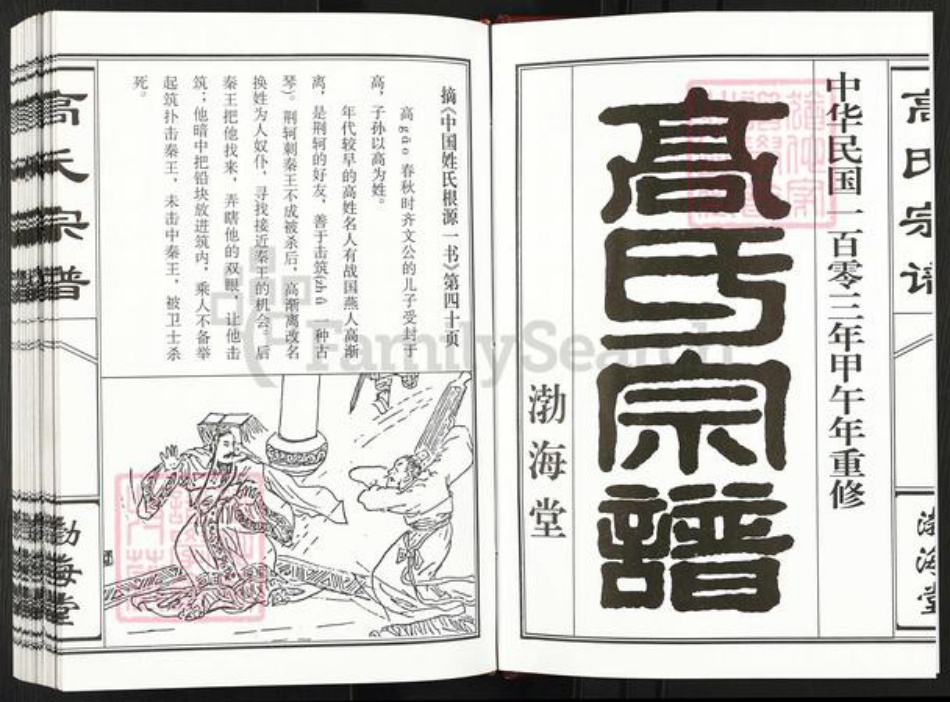 中华民国一百零三年甲午年重修
高氏宗譜
渤海堂
高氏宗谱
渤海堂
摘《中国姓氏根源一书》第四十页
高gāo 春秋时齐文公的儿子受封于
高，子孙以高为姓。
年代较早的高姓名人有战国燕人高渐
离，是荆轲的好友，善于击筑（zhú 一种古
琴）。荆轲刺秦王不成被杀后，高渐离改名
换姓为人奴仆，寻找接近秦王的机会；后
秦王把他找来，弄瞎他的双眼，让他击
筑；他暗中把铅块放进筑内，乘人不备举
起筑扑击秦王，未击中秦王，被卫士杀
死。
高氏宗谱
渤海堂
FamilySearch